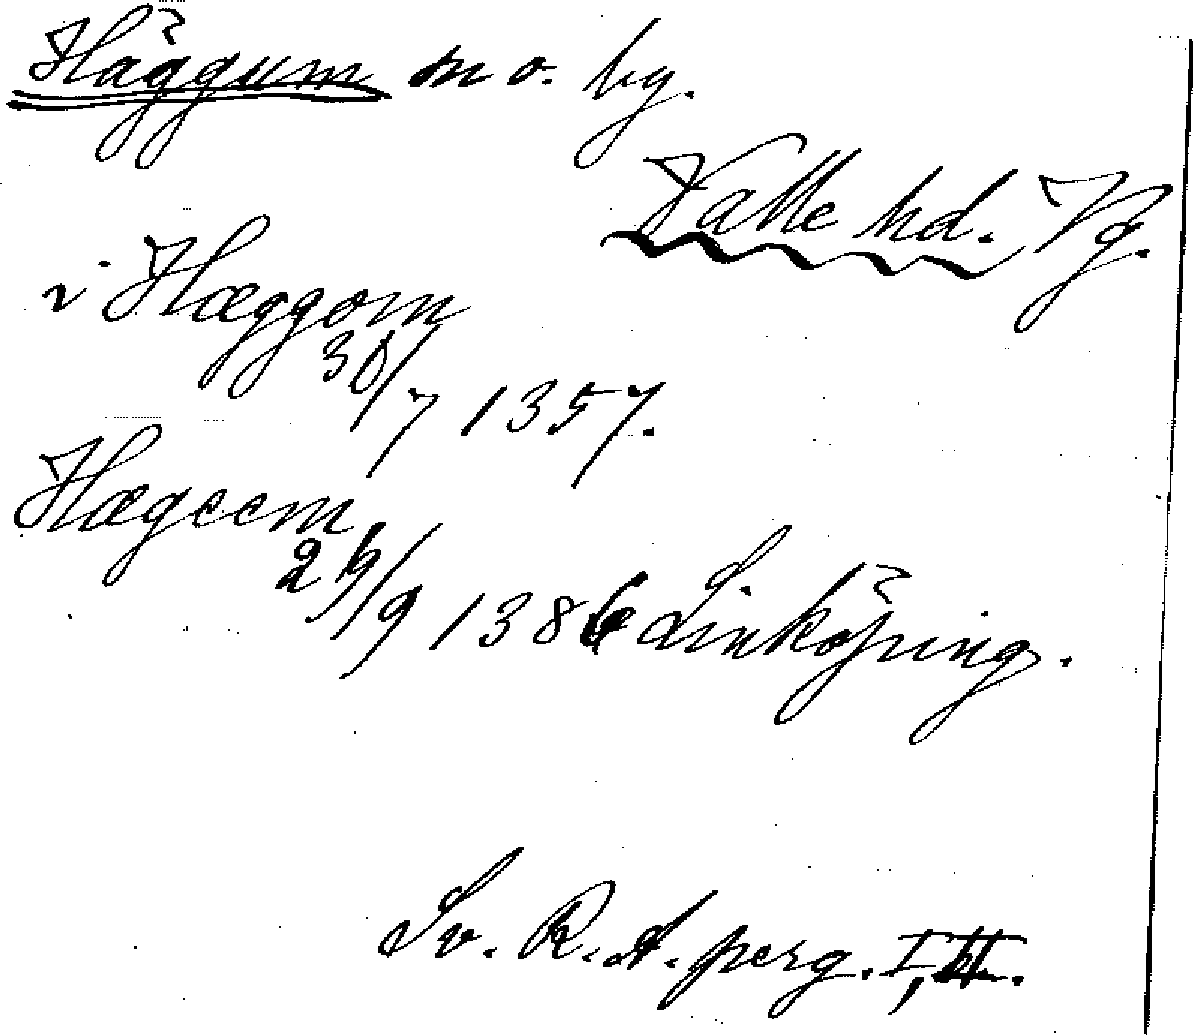 Häggum sn o. by.
Valle hd. Vg.
i Hæggom
30/7 1357.
Hægeem
26/9 1386 Linköping.
Sv. R. A. perg. I, II.